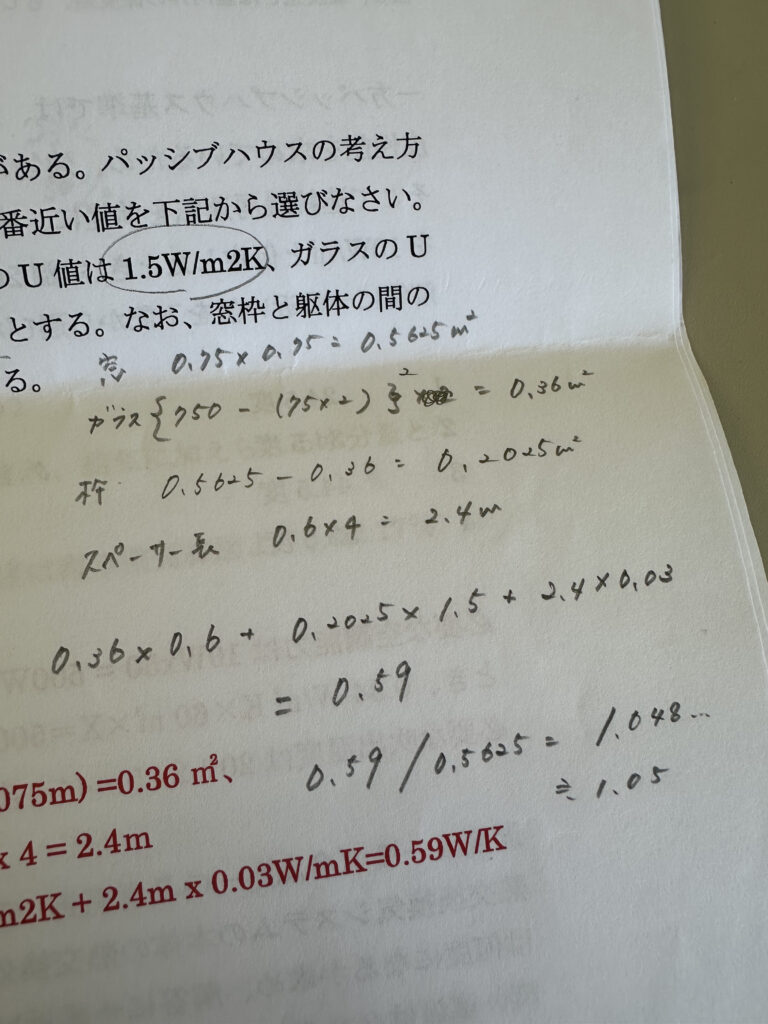 がある。パッシブハウスの考え方
番近い値を下記から選びなさい。
のU値は1.5W/m2K、ガラスのU
とする。なお、窓枠と躯体の間の
る。
窓 0.75×0.75=0.5625m²
ガラス{750-(75×2)}² =0.36m²
枠 0.5625-0.36=0.2025m²
スペーサー長 0.6×4=2.4m
0.36×0.6+0.2025×1.5+2.4×0.03
=0.59
0.59/0.5625=1.048…
≒1.05
075m)=0.36 ㎡、
x 4 = 2.4m
m2K + 2.4m x 0.03W/mK=0.59W/K